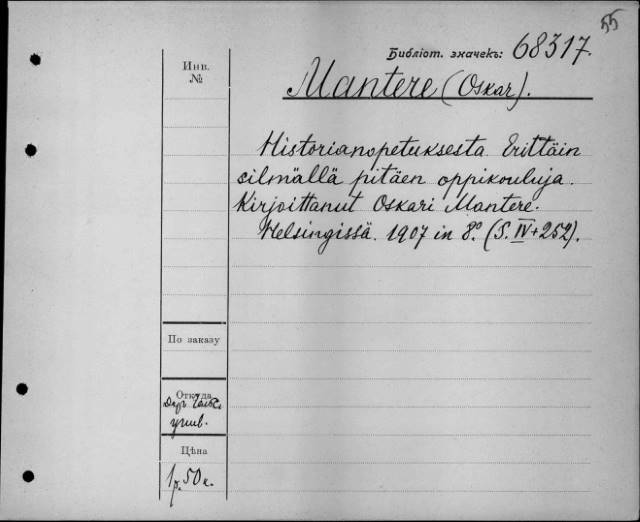 55
Библіот. значекъ: 68317.
Инв.
№
Mantere (Oskar).
Historianopetuksesta. Erittäin
silmällä pitäen oppikouluja.
Kirjoittanut Oskari Mantere.
Helsingissä. 1907 in 8º. (S. IV+252).
По заказу
Откуда
унив.
Цѣна
1р. 50 к.